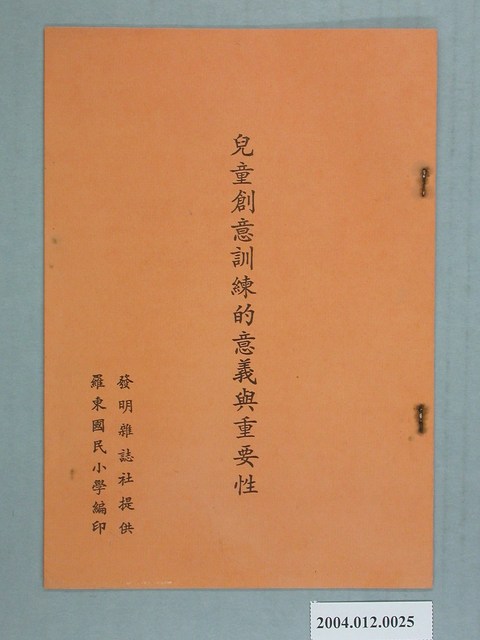 兒童創意訓練的意義與重要性
發明雜誌社提供
羅東國民小學編印
2004.012.0025